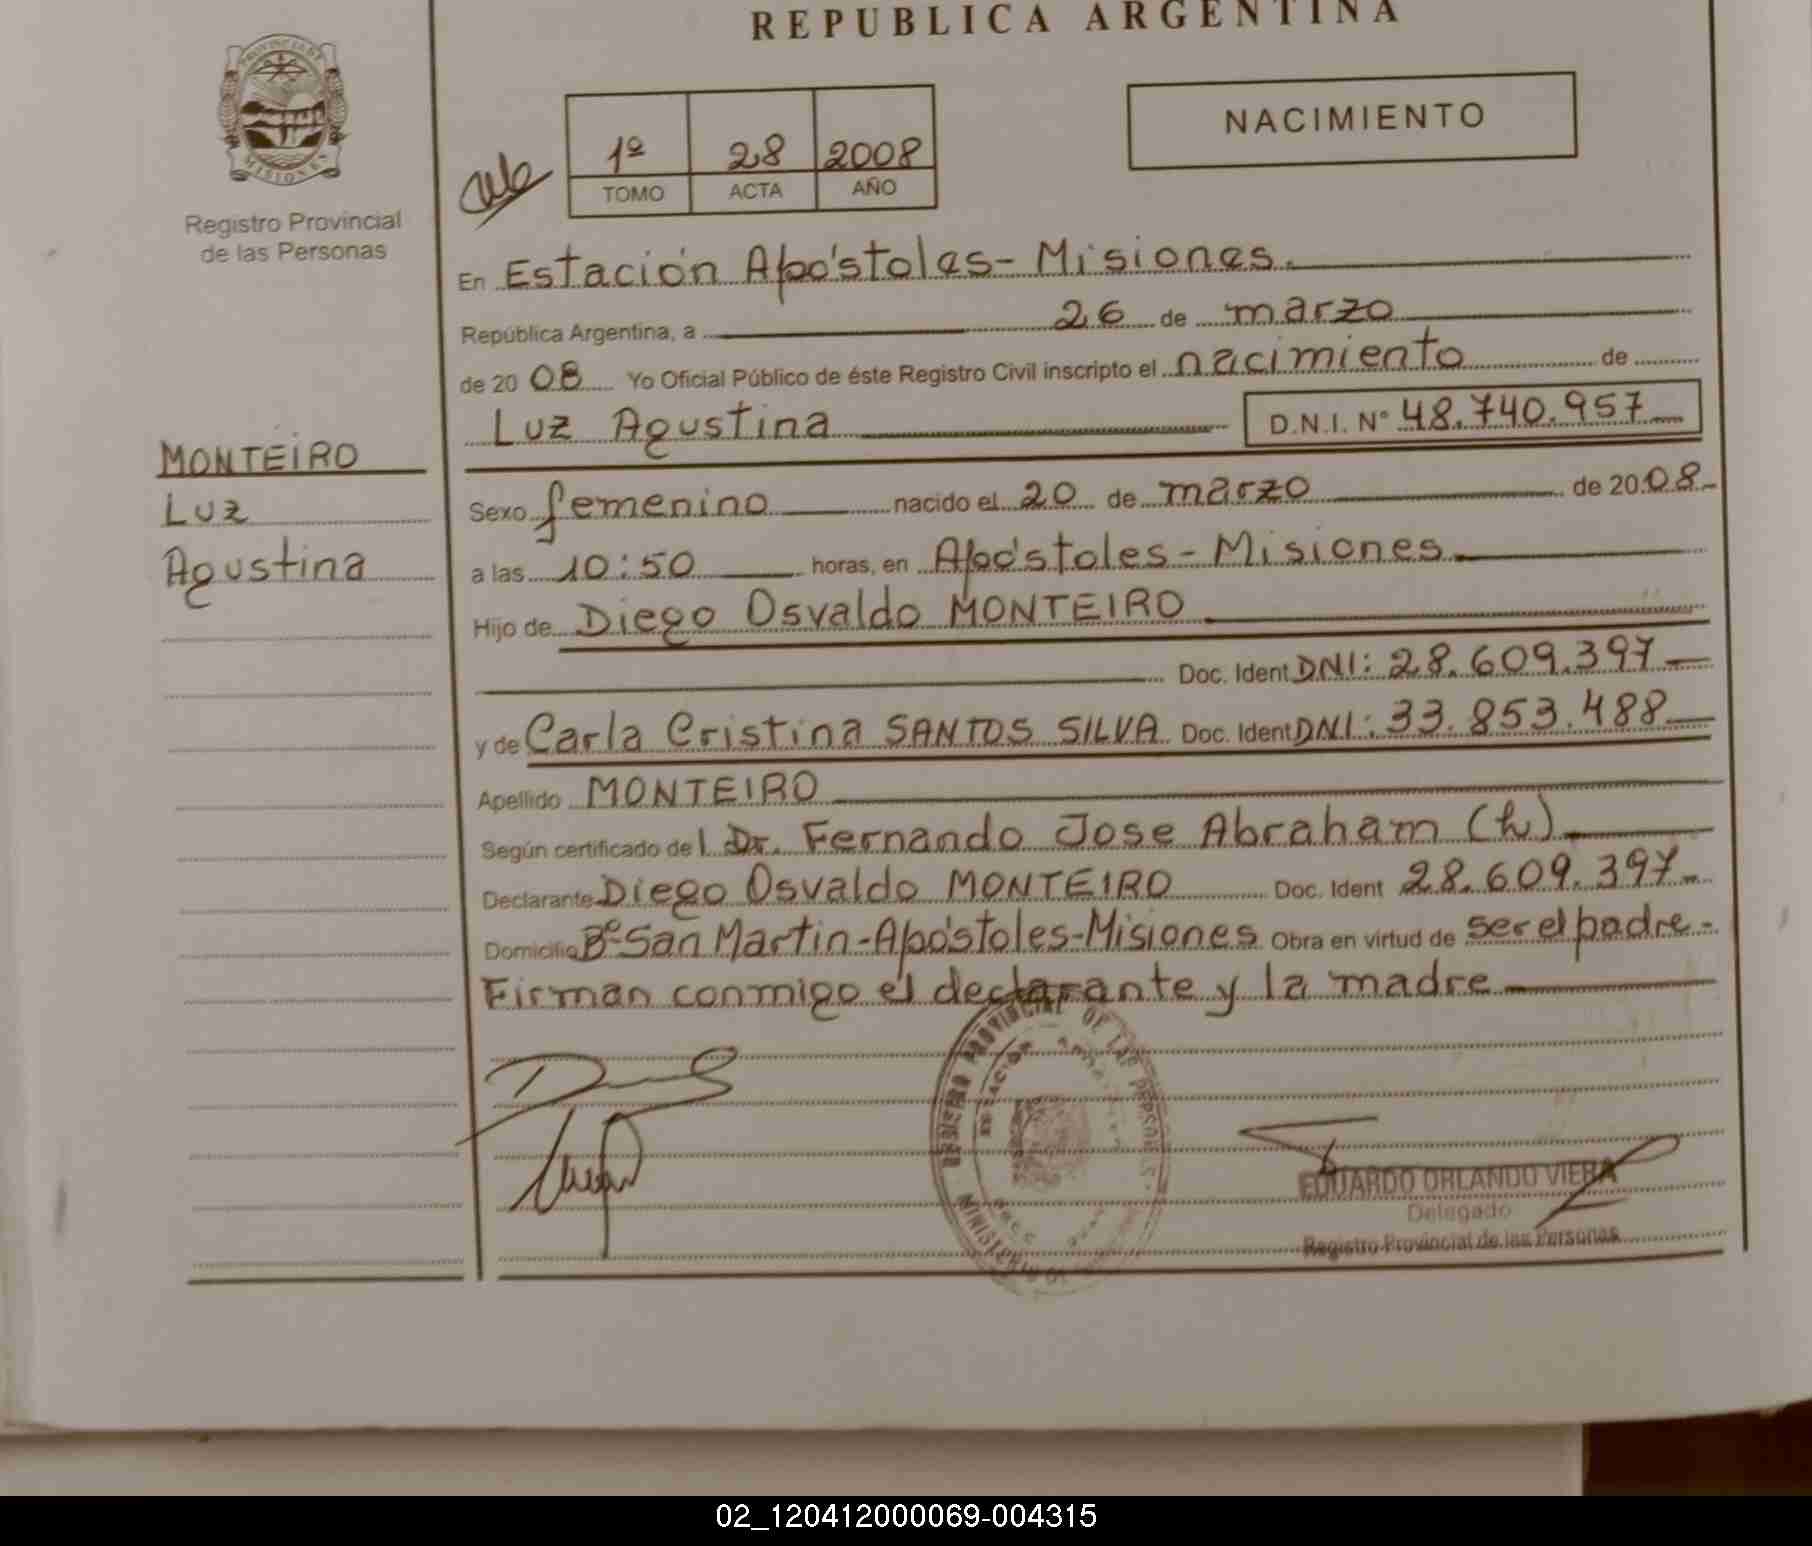 REPUBLICA ARGENTINA
PROVINCIA DE
MISIONES
Registro Provincial
de las Personas
1º 28 2008
TOMO ACTA AÑO
NACIMIENTO
En Estación Apóstoles - Misiones.
República Argentina, a 26 de marzo
de 20 08 Yo Oficial Público de éste Registro Civil inscripto el nacimiento de
Luz Agustina D.N.I. Nº 48.740.957
MONTEIRO
Luz
Agustina
Sexo femenino nacido el 20 de marzo de 20 08
a las 10:50 horas, en Apóstoles - Misiones
Hijo de Diego Osvaldo MONTEIRO
Doc. Ident DNI: 28.609.397
y de Carla Cristina SANTOS SILVA Doc. Ident DNI: 33.853.488
Apellido MONTEIRO
Según certificado del Dr. Fernando Jose Abraham (h)
Declarante Diego Osvaldo MONTEIRO Doc. Ident 28.609.397
Domicilio Bº San Martin - Apóstoles - Misiones Obra en virtud de ser el padre -
Firman conmigo el declarante y la madre
REGISTRO PROVINCIAL DE LAS PERSONAS
MINISTERIO DE
ESTACION
EDUARDO ORLANDO VIERA
Delegado
Registro Provincial de las Personas
02_120412000069-004315